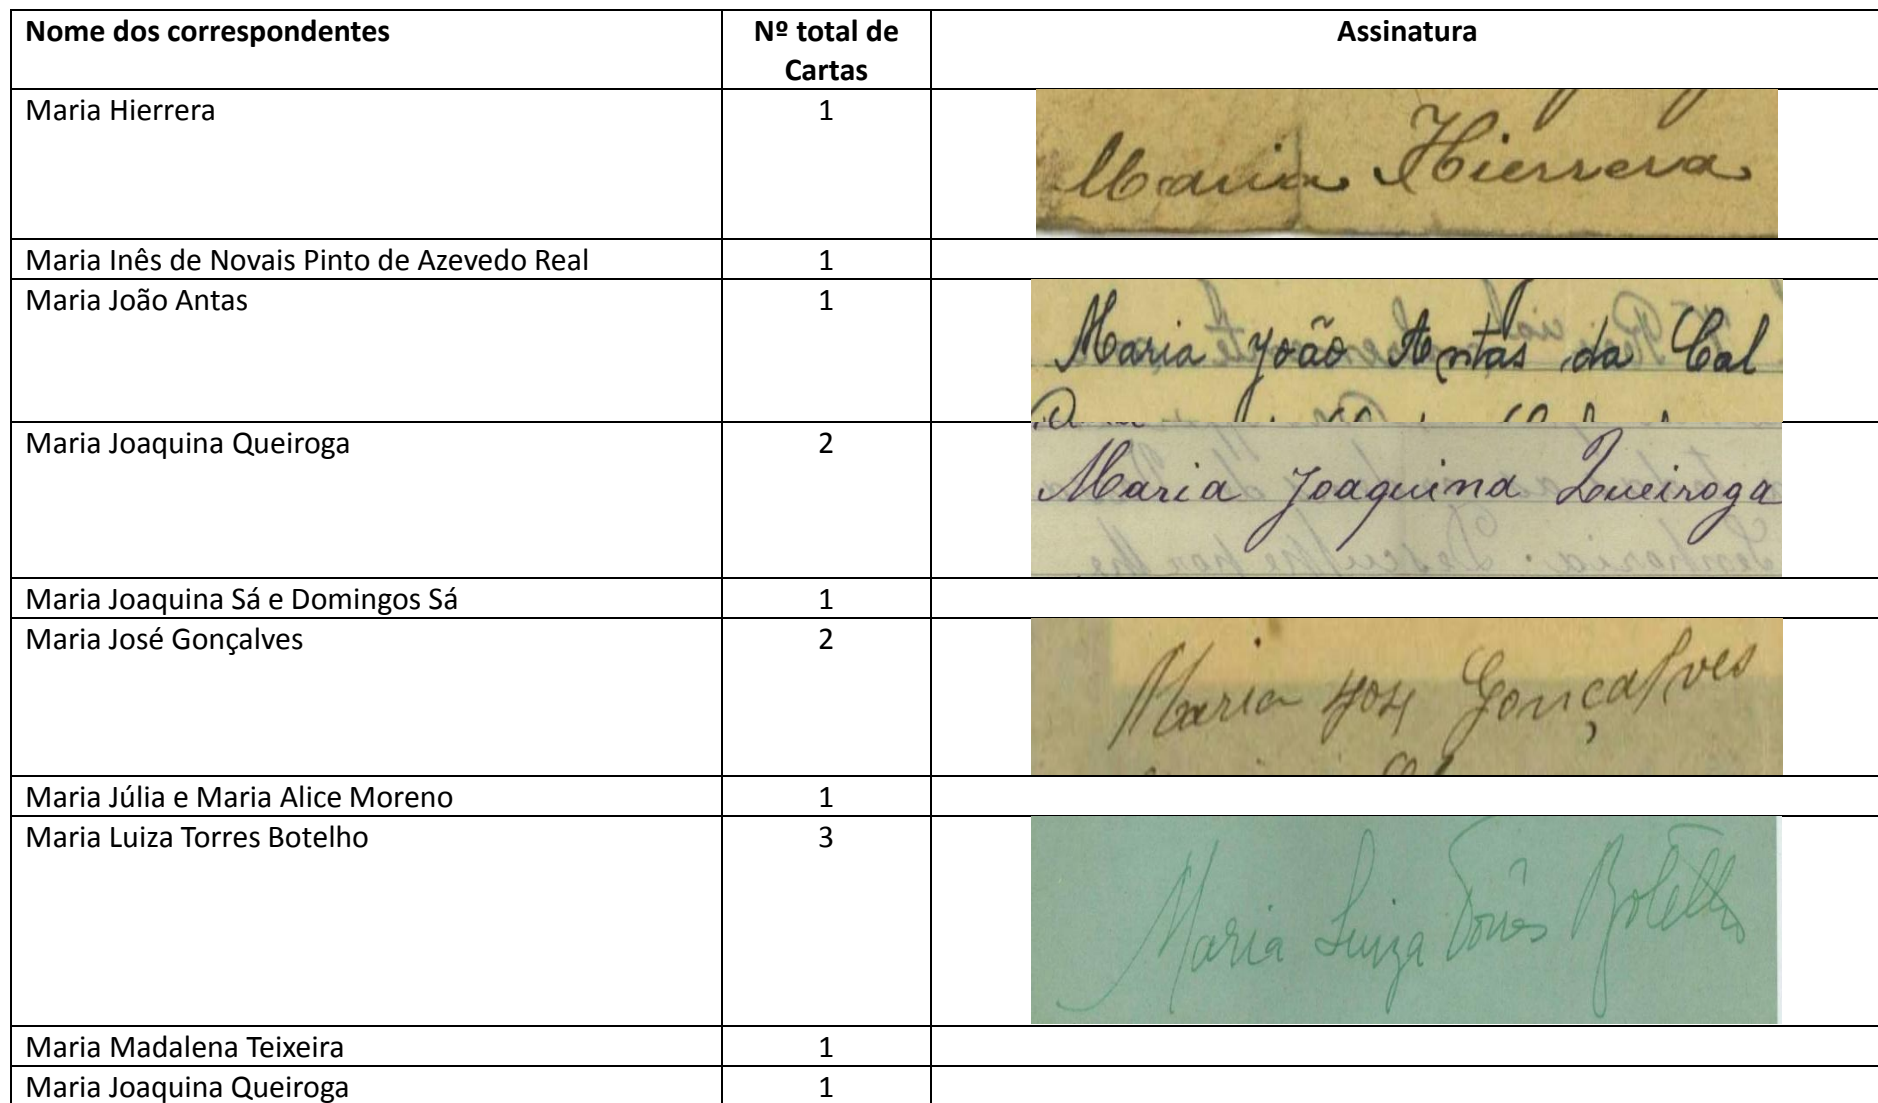 Nome dos correspondentes Nº total de Cartas Assinatura
Maria Hierrera 1
Maria Hierrera
Maria Inês de Novais Pinto de Azevedo Real 1
Maria João Antas 1
Maria João Antas da Cal
Maria Joaquina Queiroga 2
Maria Joaquina Queiroga
Maria Joaquina Sá e Domingos Sá 1
Maria José Gonçalves 2
Maria José Gonçalves
Maria Júlia e Maria Alice Moreno 1
Maria Luiza Torres Botelho 3
Maria Luiza Torrês Botelho
Maria Madalena Teixeira 1
Maria Joaquina Queiroga 1